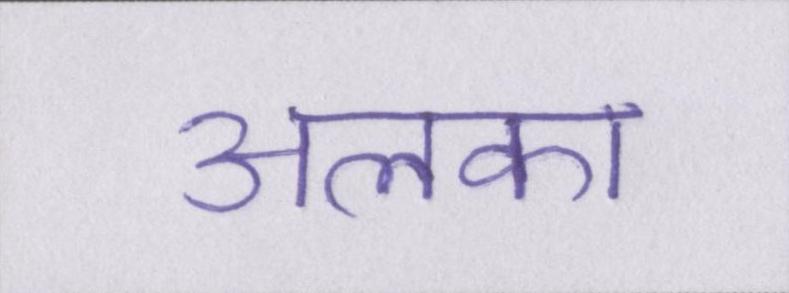 अलका